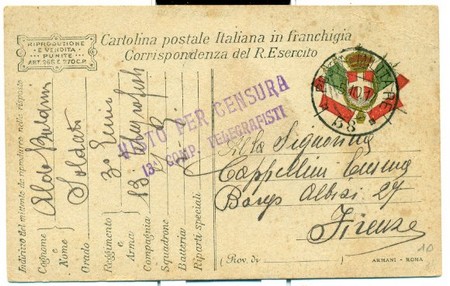 RIPRODUZIONE
E VENDITA
PUNITE
ART. 268 E 270 C.P.
Cartolina postale Italiana in franchigia
Corrispondenza del R. Esercito
POSTA MILITARE
53
VISTO PER CENSURA
13ª COMP. TELEGRAFISTI
Alla Signorina
Cappellini
Borgo Albizi 27
Firenze
(Prov. di
)
ARMANI - ROMA
10
Indirizzo del mittente da riprodurre nella risposta
Cognome
e
Nome
Aldo
Grado
Soldato
Reggimento
e
Arma
3º Genio
Compagnia
13 Telegrafisti
Squadrone
Batteria
Riparti speciali